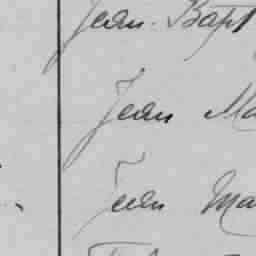 Jean-Bapt
Jean Ma
Jean Ma